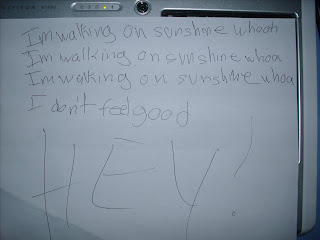 I'm walking on sunshine whoah
I'm walking on sunshine whoa
I'm waking on sunshine whoa
I don't feel good
HEY!